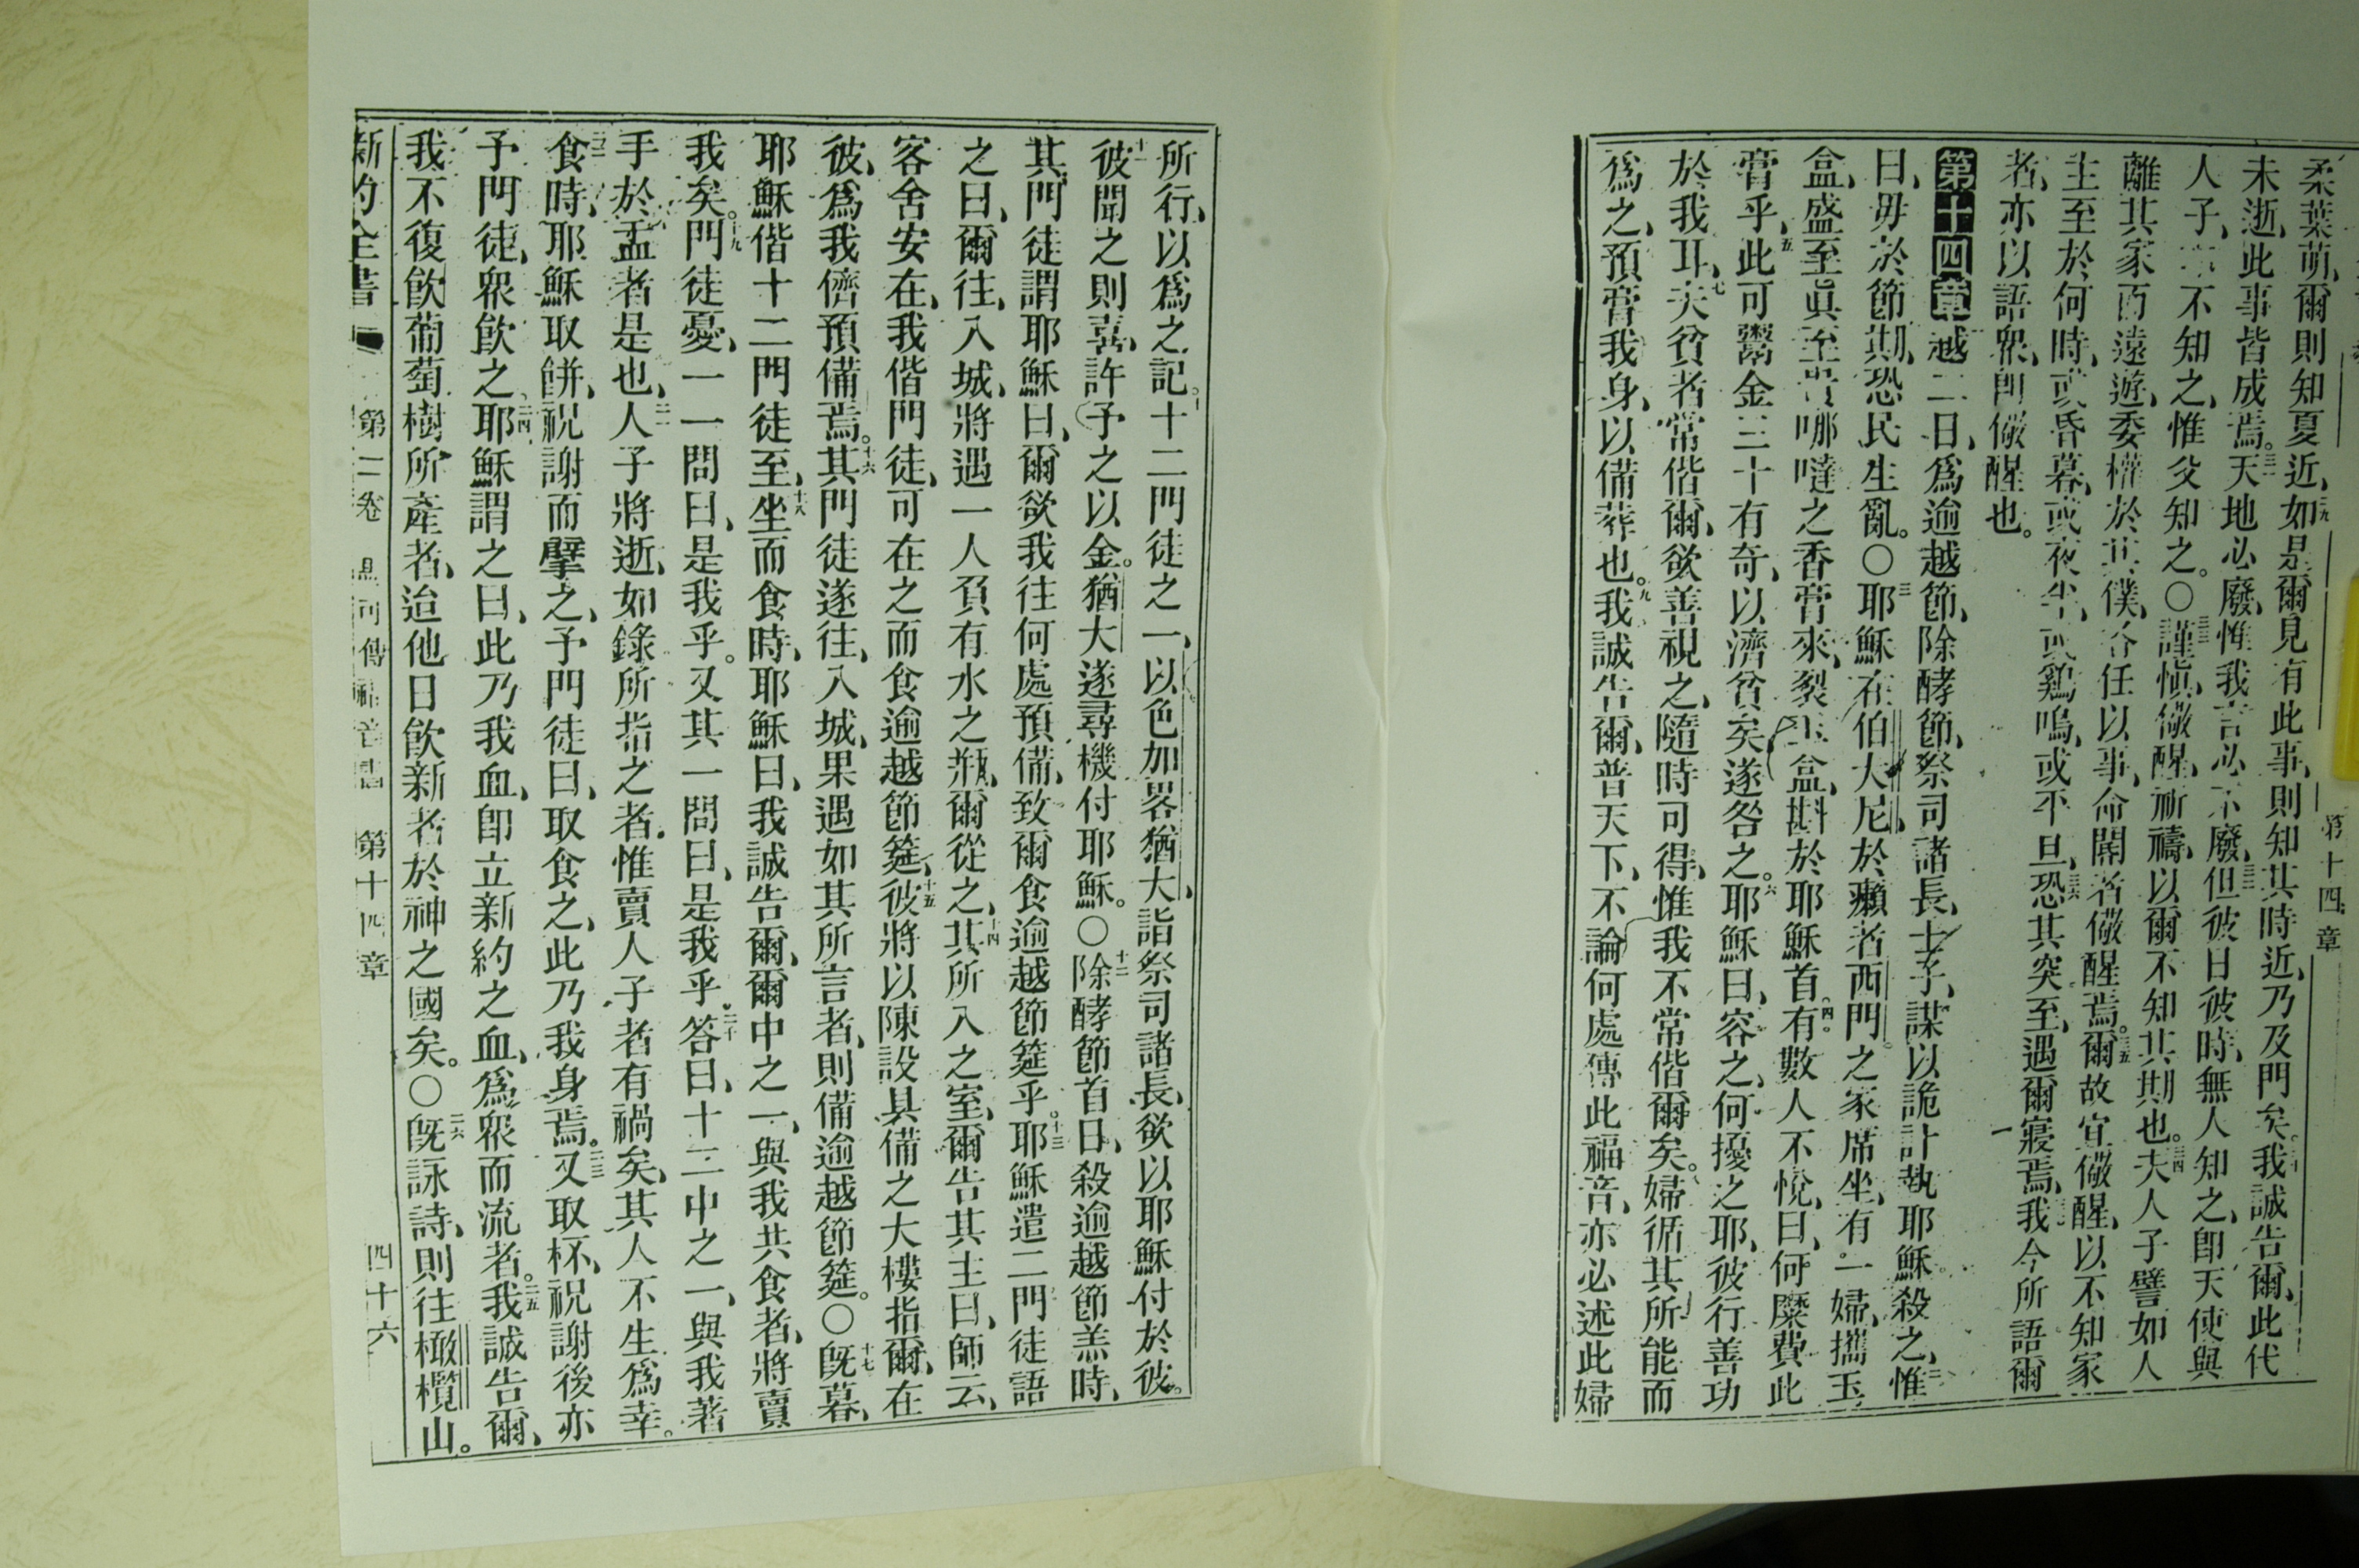 第十四章
柔葉萌、爾則知夏近、二九如是爾見有此事、則知其時近、乃及門矣。三十我誠告爾、此代
未逝、此事皆成焉。三一天地必廢、惟我言必不廢、三二但彼日彼時、無人知之、卽天使與
人子、不知之、惟父知之。〇三三謹愼、儆醒、祈禱、以爾不知其期也。三四夫人子譬如人
離其家而遠遊、委權於其僕、各任以事、命閽者儆醒焉。三五爾故宜儆醒、以不知家
主至於何時、或昏暮、或夜半、或鷄鳴、或平旦、三六恐其突至、遇爾寢焉、我今所語爾
者、亦以語衆、卽儆醒也。
第十四章 越二日、爲逾越節、除酵節、祭司諸長、士子、謀以詭計執耶穌殺之、二惟
曰、毋於節期、恐民生亂。〇三耶穌在伯大尼於癩者西門之家席坐、有一婦、攜玉
盒、盛至眞至貴哪噠之香膏來、裂玉盒、斟於耶穌首。四有數人不悅、曰、何糜費此
膏乎、五此可鬻金三十有奇、以濟貧矣、遂咎之。六耶穌曰、容之、何擾之耶、彼行善功
於我耳、七夫貧者常偕爾、欲善視之、隨時可得、惟我不常偕爾矣。八婦循其所能而
爲之、預膏我身、以備葬也。九我誠告爾、普天下、不論何處傳此福音、亦必述此婦
所行、以爲之記。十十二門徒之一、以色加畧猶大、詣祭司諸長、欲以耶穌付於彼。
十一彼聞之則喜、許予之以金。猶大遂尋機付耶穌。〇十二除酵節首日、殺逾越節羔時、
其門徒謂耶穌曰、爾欲我往何處預備、致爾食逾越節筵乎。十三耶穌遣二門徒語
之曰、爾往、入城、將遇一人負有水之瓶、爾從之、十四其所入之室、爾告其主曰、師云、
客舍安在、我偕門徒、可在之而食逾越節筵、十五彼將以陳設具備之大樓指爾、在
彼爲我儕預備焉。十六其門徒遂往、入城、果遇如其所言者、則備逾越節筵。〇十七旣暮、
耶穌偕十二門徒至、十八坐而食時、耶穌曰、我誠告爾、爾中之一、與我共食者、將賣
我矣。十九門徒憂、一一問曰、是我乎。又其一問曰、是我乎。二十答曰、十二中之一、與我著
手於盂者是也、二一人子將逝、如錄所指之者、惟賣人子者有禍矣、其人不生爲幸。
二二食時、耶穌取餅、祝謝而擘之、予門徒曰、取食之、此乃我身焉。二三又取杯、祝謝後亦
予門徒、衆飮之。二四耶穌謂之曰、此乃我血、卽立新約之血、爲衆而流者。二五我誠告爾、
我不復飮葡萄樹所產者、迨他日飮新者於神之國矣。〇二六旣詠詩、則往橄欖山。
新約全書 第二卷 馬可傳福音書 第十四章 四十六